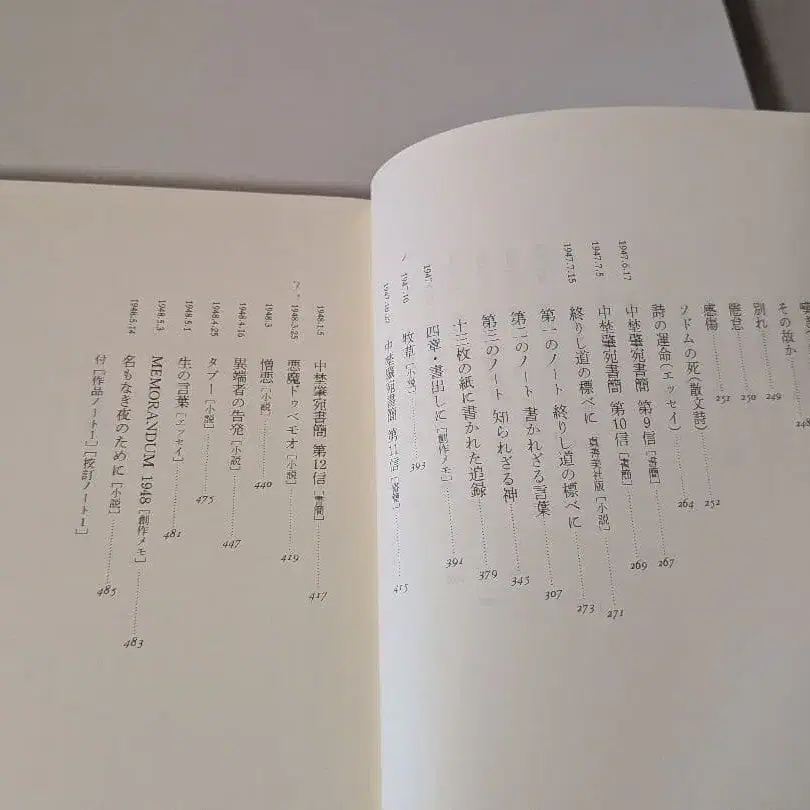 その故か 248
別れ 249
倦怠 250
感傷 251
ソドムの死(散文詩) 252
詩の運命(エッセイ) 264
1947.6.17 中埜肇宛書簡 第9信[書簡] 267
1947.7.5 中埜肇宛書簡 第10信[書簡] 269
1947.7.15 終りし道の標べに 真善美社版[小説] 271
終りし道の標べに 273
第一のノート 終りし道の標べに 307
第二のノート 書かれざる言葉 345
第三のノート 知られざる神 379
十三枚の紙に書かれた追録 391
四章・書出しに[創作メモ]
牧草[小説] 393
中埜肇宛書簡 第11信[書簡] 415
1948.1.5 中埜肇宛書簡 第12信[書簡] 417
1948.3.25 悪魔ドゥベモオ[小説] 419
1948.3 憎悪[小説] 440
1948.4.16 異端者の告発[小説] 447
1948.4.25 タブー[小説] 475
1948.5.1 生の言葉[エッセイ] 481
1948.5.3 MEMORANDUM 1948[創作メモ] 483
名もなき夜のために[小説] 485
付[作品ノート1][校訂ノート1]